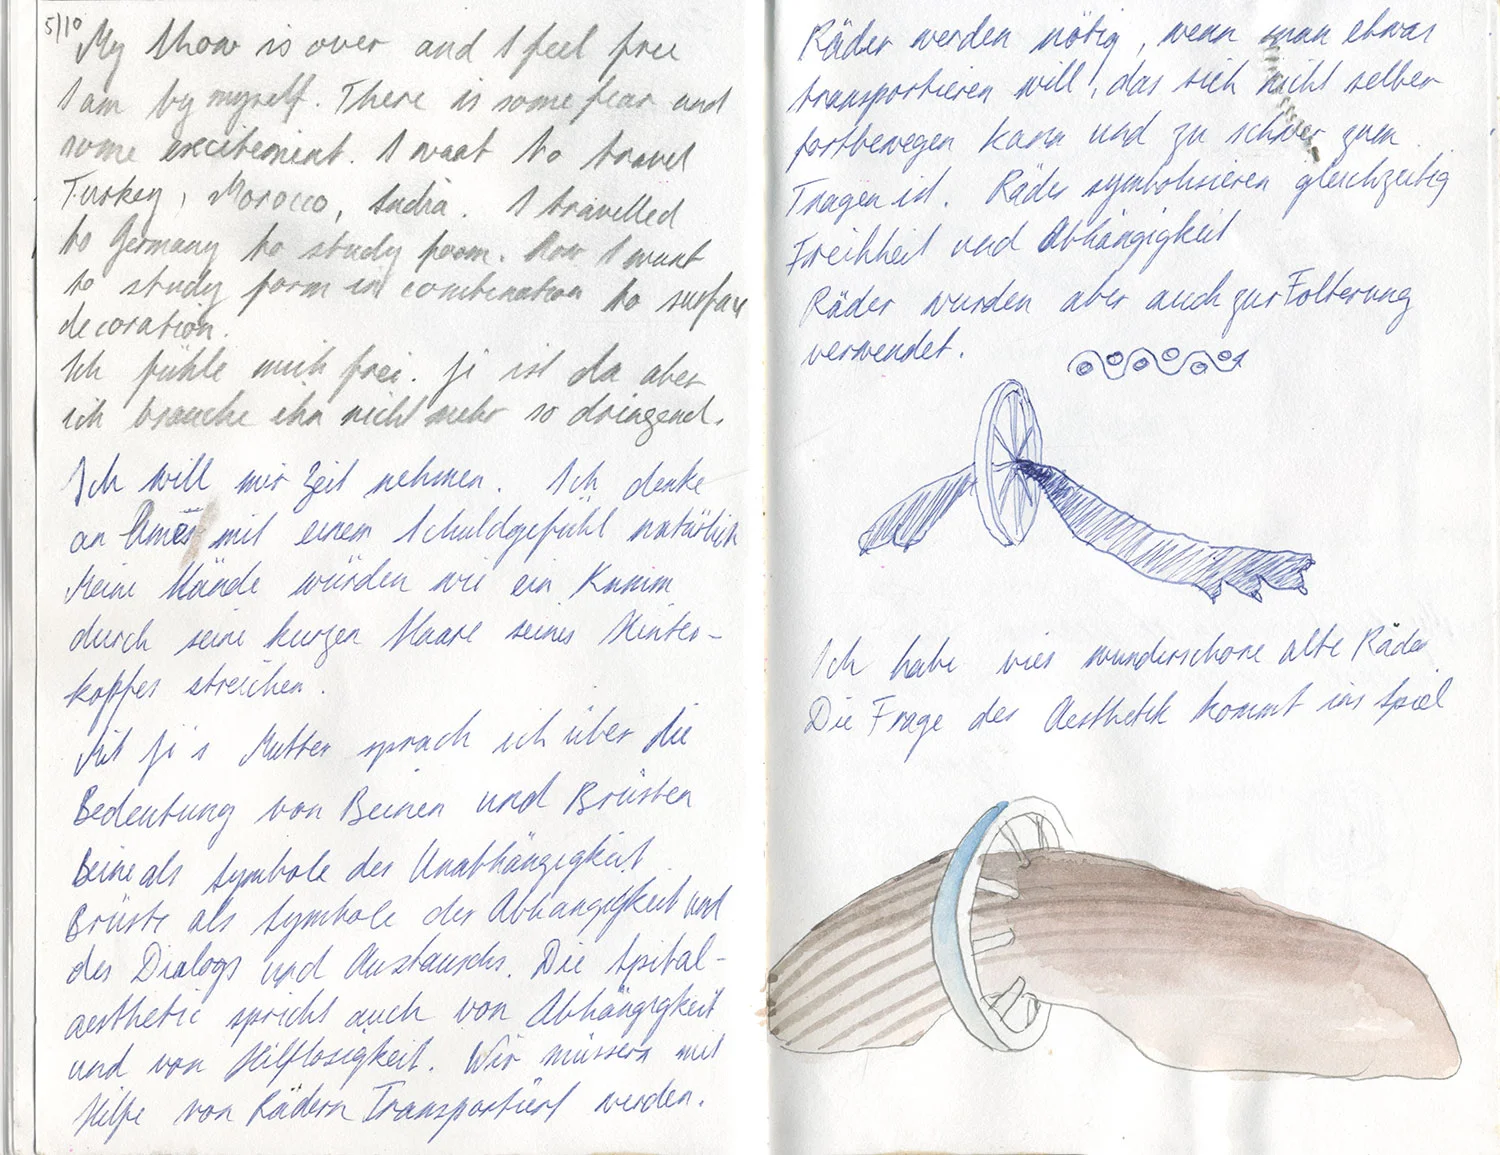 5/10
My show is over and I feel free
I am by myself. There is some fear and
some excitement. I want to travel
Turkey, Morocco, India. I travelled
to Germany to study form. Now I want
to study form in combination to surface
decoration.
Ich fühle mich frei. Ji ist da aber
ich brauche ihn nicht mehr so dringend.
Ich will mir Zeit nehmen. Ich denke
an mit einem Schuldgefühl natürlich
Meine Hände würden wie ein Kamm
durch seine kurzen Haare seines Hinter-
kopfes streichen.
Mit Ji's Mutter sprach ich über die
Bedeutung von Beinen und Brüsten
Beine als Symbole der Unabhängigkeit
Brüste als Symbole der Abhängigkeit und
des Dialogs und Austauschs. Die Spital-
aesthetic spricht auch von Abhängigkeit
und von Hilflosigkeit. Wir müssen mit
Hilfe von Rädern Transportiert werden.
Räder werden nötig, wenn man etwas
transportieren will, das sich nicht selber
fortbewegen kann und zu schwer zum
Tragen ist. Räder symbolisieren gleichzeitig
Freihheit und Abhängigkeit
Räder wurden aber auch zur Folterung
verwendet.
Ich habe vier wunderschöne alte Räder
Die Frage der Aesthetik kommt ins Spiel